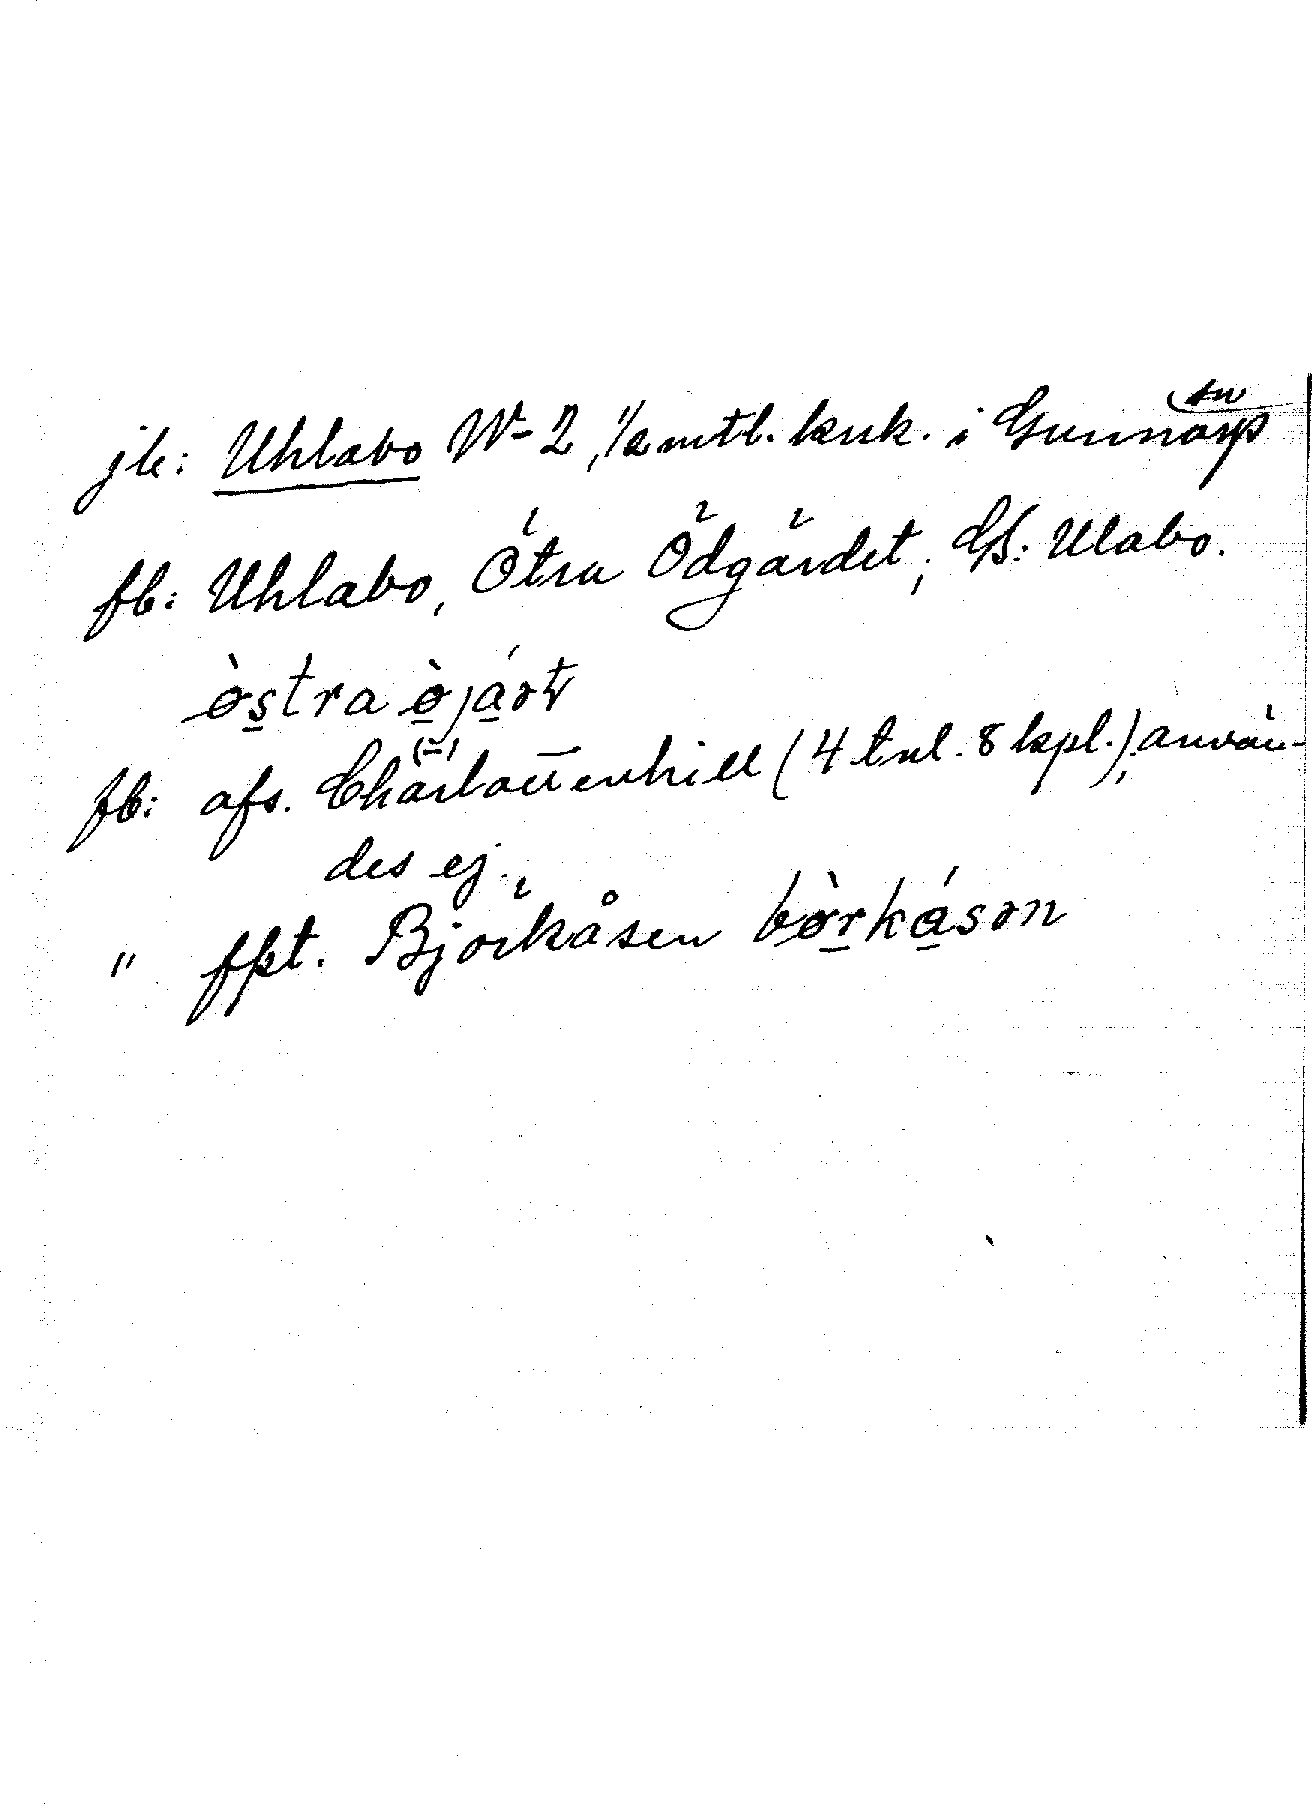 jb: Uhlabo No 2, 1/2 mtl. krk. i Gunnarp sn
fb: Uhlabo, Östra Ödgärdet; GS: Ulabo.
östra öjáət
fb: afs. Charlottenhill (4 tnl. 8 kpl.), använ-
des ej.
" fpt. Björkåsen börkásən